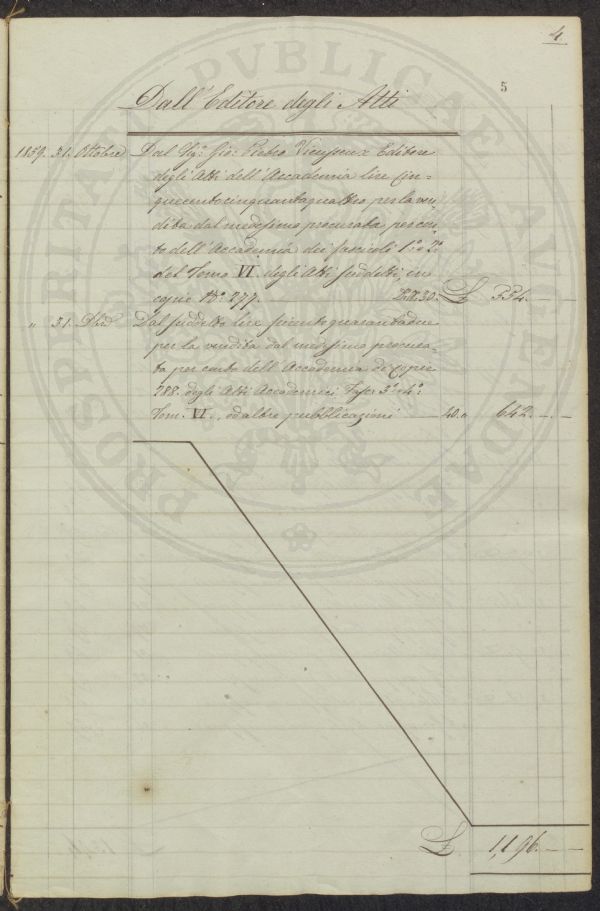 4.
5
Dall' Editore degli Atti
1859. 31. Ottobre Dal Sigr. Gio: Pietro Vieusseux Editore
degli Atti dell' Accademia lire cin=
quecentocinquantaquattro per la ven
dita dal medesimo procurata per con
to dell' Accademia dei fascicoli 1.° e 2.°
del Tomo VI. degli Atti suddetti, in
copie N.° 277. 30. £ 554. — —
" 31. Do Dal suddetto lire seicentoquarantadue
per la vendita dal medesimo procura=
ta per conto dell' Accademia di copie
288. degli Atti Accademici Fasci 3.° e 4.°
Tom. VI., ed altre pubblicazioni — 40. " 642. — —
£ 1,196. — —
PROSPERITATI PVBLICAE AVGENDAE